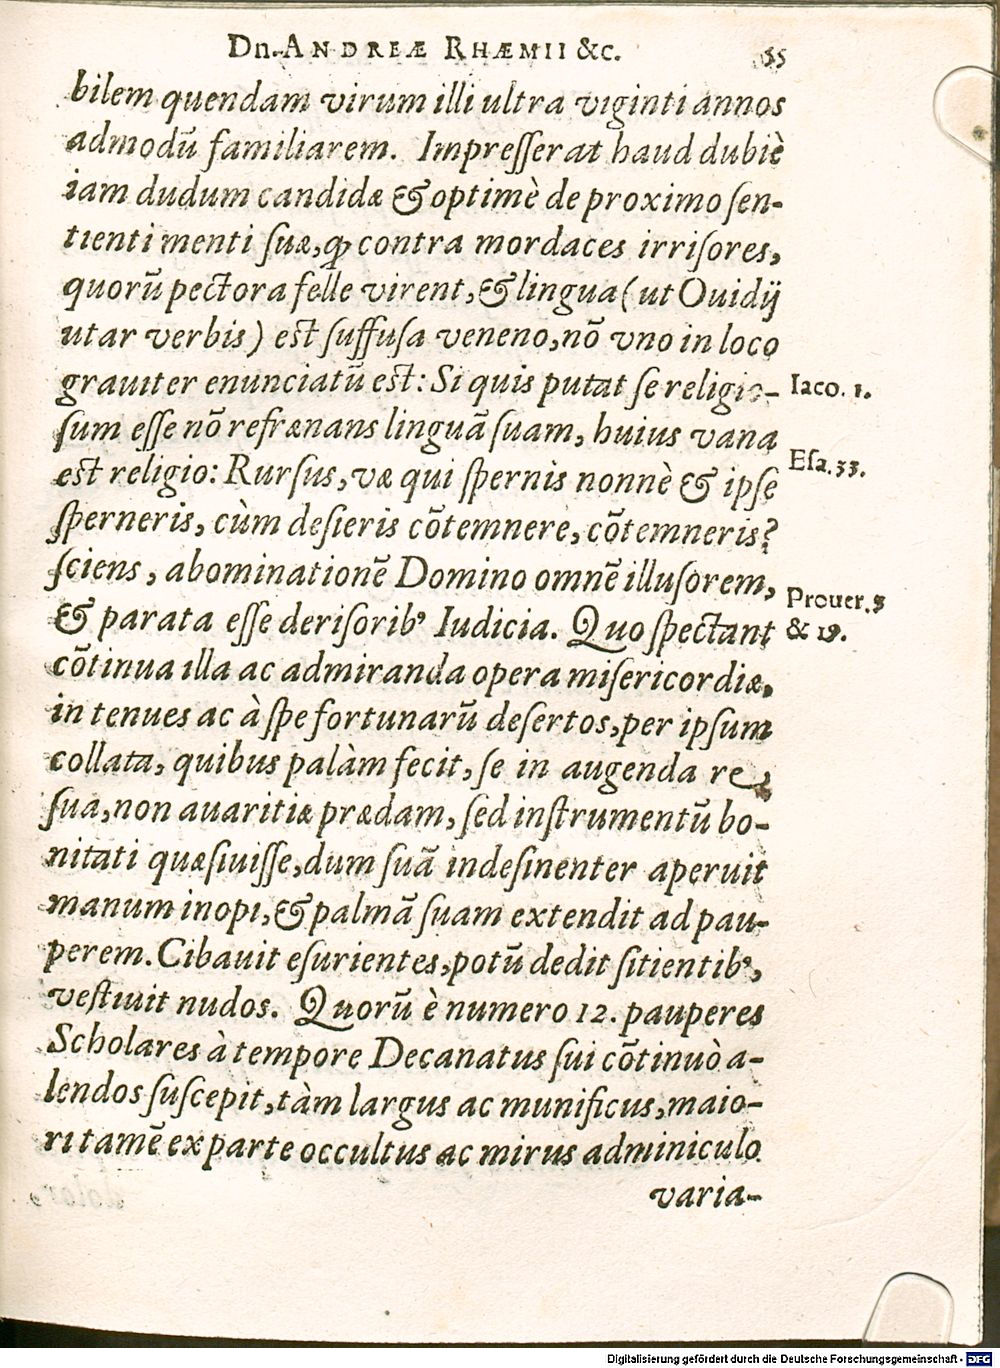 Dn. ANDREÆ RHÆMII &c. 35
bilem quendam virum illi ultra viginti annos
admodū familiarem. Impreſſerat haud dubiè
iam dudum candidæ & optimè de proximo ſen-
tienti menti ſuæ, ꝙ contra mordaces irriſores,
quorū pectora felle virent, & lingua (ut Ouidij
utar verbis) est ſuffuſa veneno, nō vno in loco
grauiter enunciatū est: Si quis putat ſe religio-
Iaco. 1.
ſum eſſe nō refrænans linguā ſuam, huius vana
est religio: Rurſus, væ qui ſpernis nonnè & ipſe
Eſa. 33.
ſperneris, cùm deſieris cōtemnere, cōtemneris?
ſciens, abominationē Domino omnē illuſorem,
& parata eſſe deriſorib⁹ Iudicia. Quo ſpectant
Prouer. 3
& 19.
cōtinua illa ac admiranda opera miſericordiæ,
in tenues ac à ſpe fortunarū deſertos, per ipſum
collata, quibus palàm fecit, ſe in augenda re
ſua, non auaritiæ prædam, ſed inſtrumentū bo-
nitati quæſiuiſſe, dum ſuā indeſinenter aperuit
manum inopi, & palmā ſuam extendit ad pau-
perem. Cibauit eſurientes, potū dedit ſitientib⁹,
veſtiuit nudos. Quorū è numero 12. pauperes
Scholares à tempore Decanatus ſui cōtinuò a-
lendos ſuſcepit, tàm largus ac munificus, maio-
ri tamē ex parte occultus ac mirus adminiculo
varia-
Digitalisierung gefördert durch die Deutsche Forschungsgemeinschaft - DFG